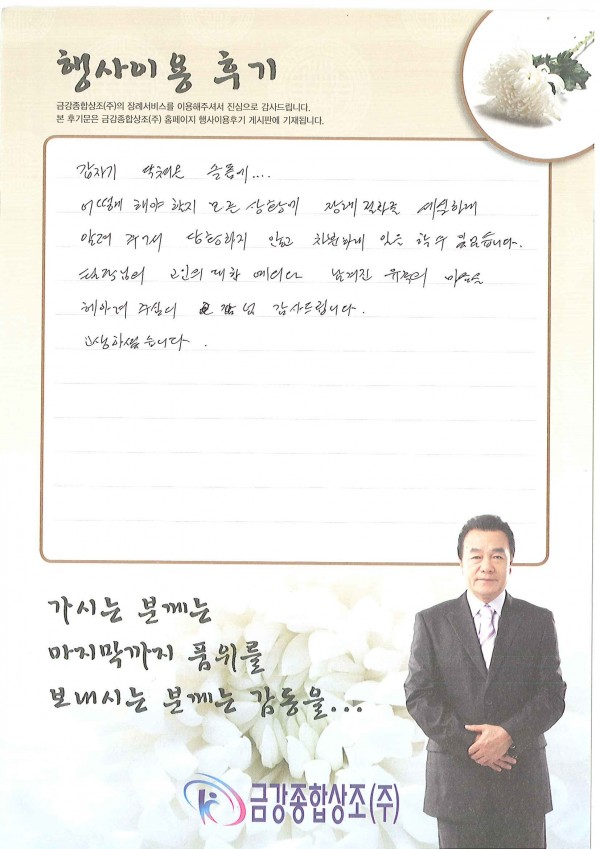 행사이용 후기
금강종합상조(주)의 장례서비스를 이용해주셔서 진심으로 감사드립니다.
본 후기문은 금강종합상조(주) 홈페이지 행사이용후기 게시판에 기재됩니다.
갑자기 닥쳐온 슬픔에....
어떻게 해야 할지 모른 상황에 장례절차를 세심하게
알려 주셔서 당황하지 않고 차분하게 있을 할 수 있었습니다.
고인의 대한 예의와 남겨진 유족의 마음을
헤아려 주심에 감사드립니다.
고생하셨습니다.
가시는 분께는
마지막까지 품위를
보내시는 분께는 감동을...
금강종합상조(주)